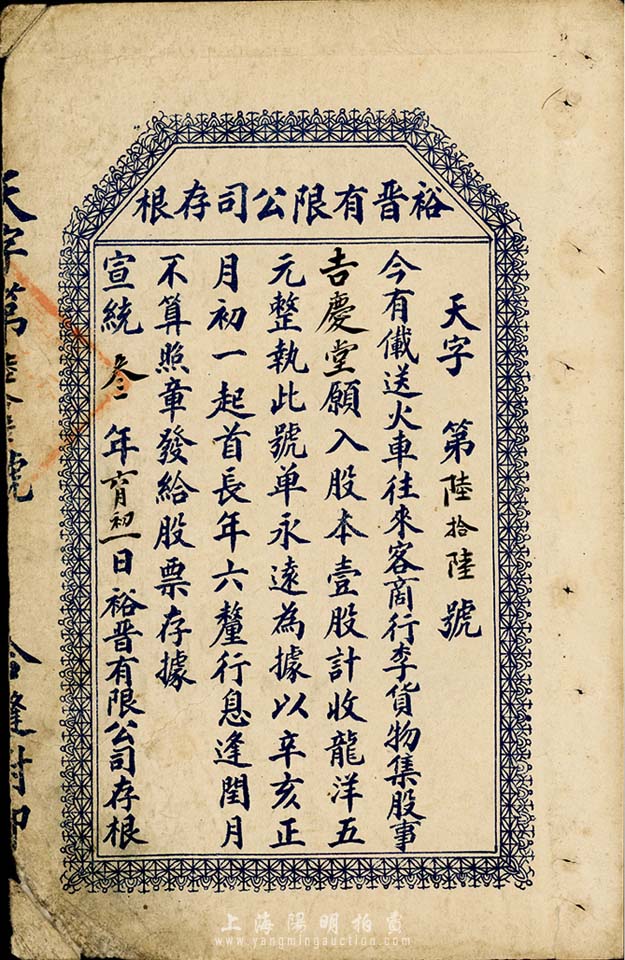 裕晋有限公司存根
天字 第陸拾陸號
今有儎送火車往來客商行李貨物集股事
吉慶堂願入股本壹股計收龍洋五
元整執此號单永遠為據以辛亥正
月初一起首長年六釐行息逢閏月
不算照章發給股票存據
宣統 叁 年 月初一日裕晋有限公司存根
天字第陸拾陸號
合縫對印
上海陽明拍賣
www.yangmingauction.com